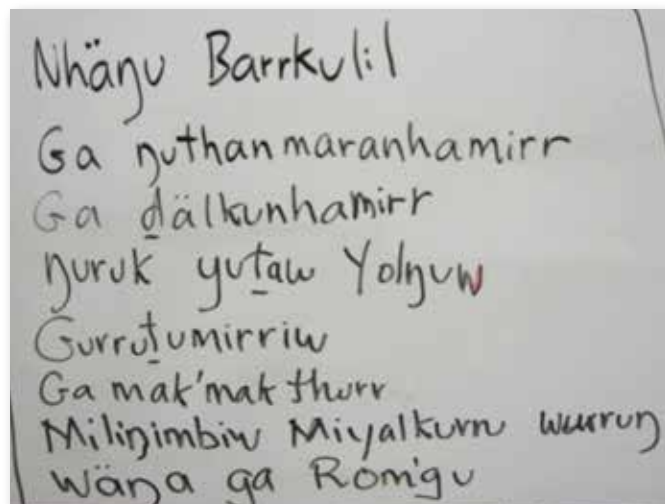 Nhäŋu Barrkulil
Ga ŋuthanmaranhamirr
Ga ḏälkunhamirr
ŋuruk yuṯaw Yolŋuw
Gurruṯumirriw
Ga mak'mak thurr
Miliŋimbiw Miyalkurru wurruŋ
Wäŋa ga Rom'gu